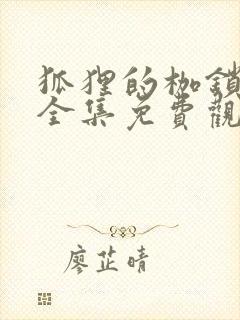 狐狸的枷鎖
全集免費觀
廖芷晴